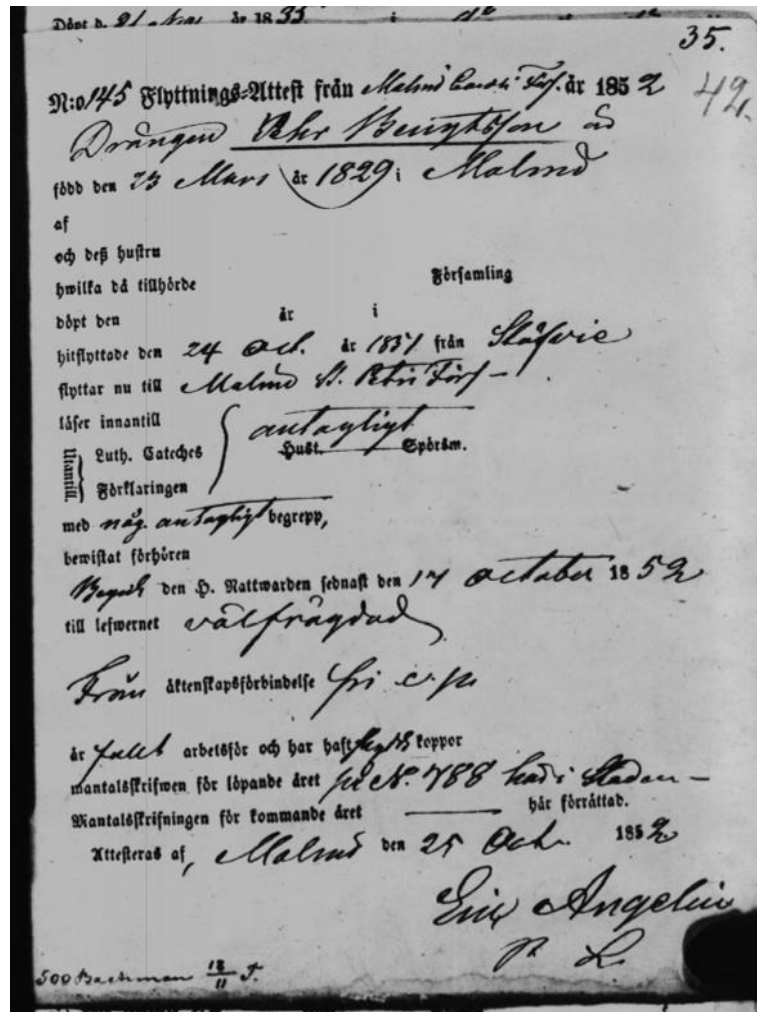 Döpt d. 21 år 1835 i
35.
N:o 145 Flyttnings-Attest från Malmö Caroli Förs. år 1852
42.
Drängen Bengtsson är
född den 23 Mars år 1829 i Malmö
af
och deß hustru
hwilka då tillhörde Församling
döpt den år i
hitflyttade den 24 Oct. år 1851 från
flyttar nu till Malmö St. Petri Förs
läser innantill antagligt
Utantill. Luth. Cateches Hust. Spörsm.
Förklaringen
med någ. antagligt begrepp,
bewistat förhören
Begick den H. Nattwarden sednast den 17 October 1852
till lefwernet välfrägdad
Från äktenskapsförbindelse fri
är arbetsför och har haft koppor
mantalsskrifwen för löpande året på No. 788 här i Staden
Mantalsskrifningen för kommande året här förrättad.
Attesteras af, Malmö den 25 Oct. 1852
Angelin
500 Bachman 18/11 T.